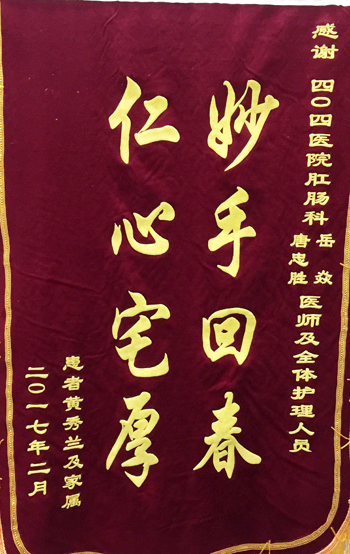 感谢 四〇四医院肛肠科 岳焱 唐忠胜 医师及全体护理人员
妙手回春
仁心宅厚
患者黄秀兰及家属
二〇一七年二月